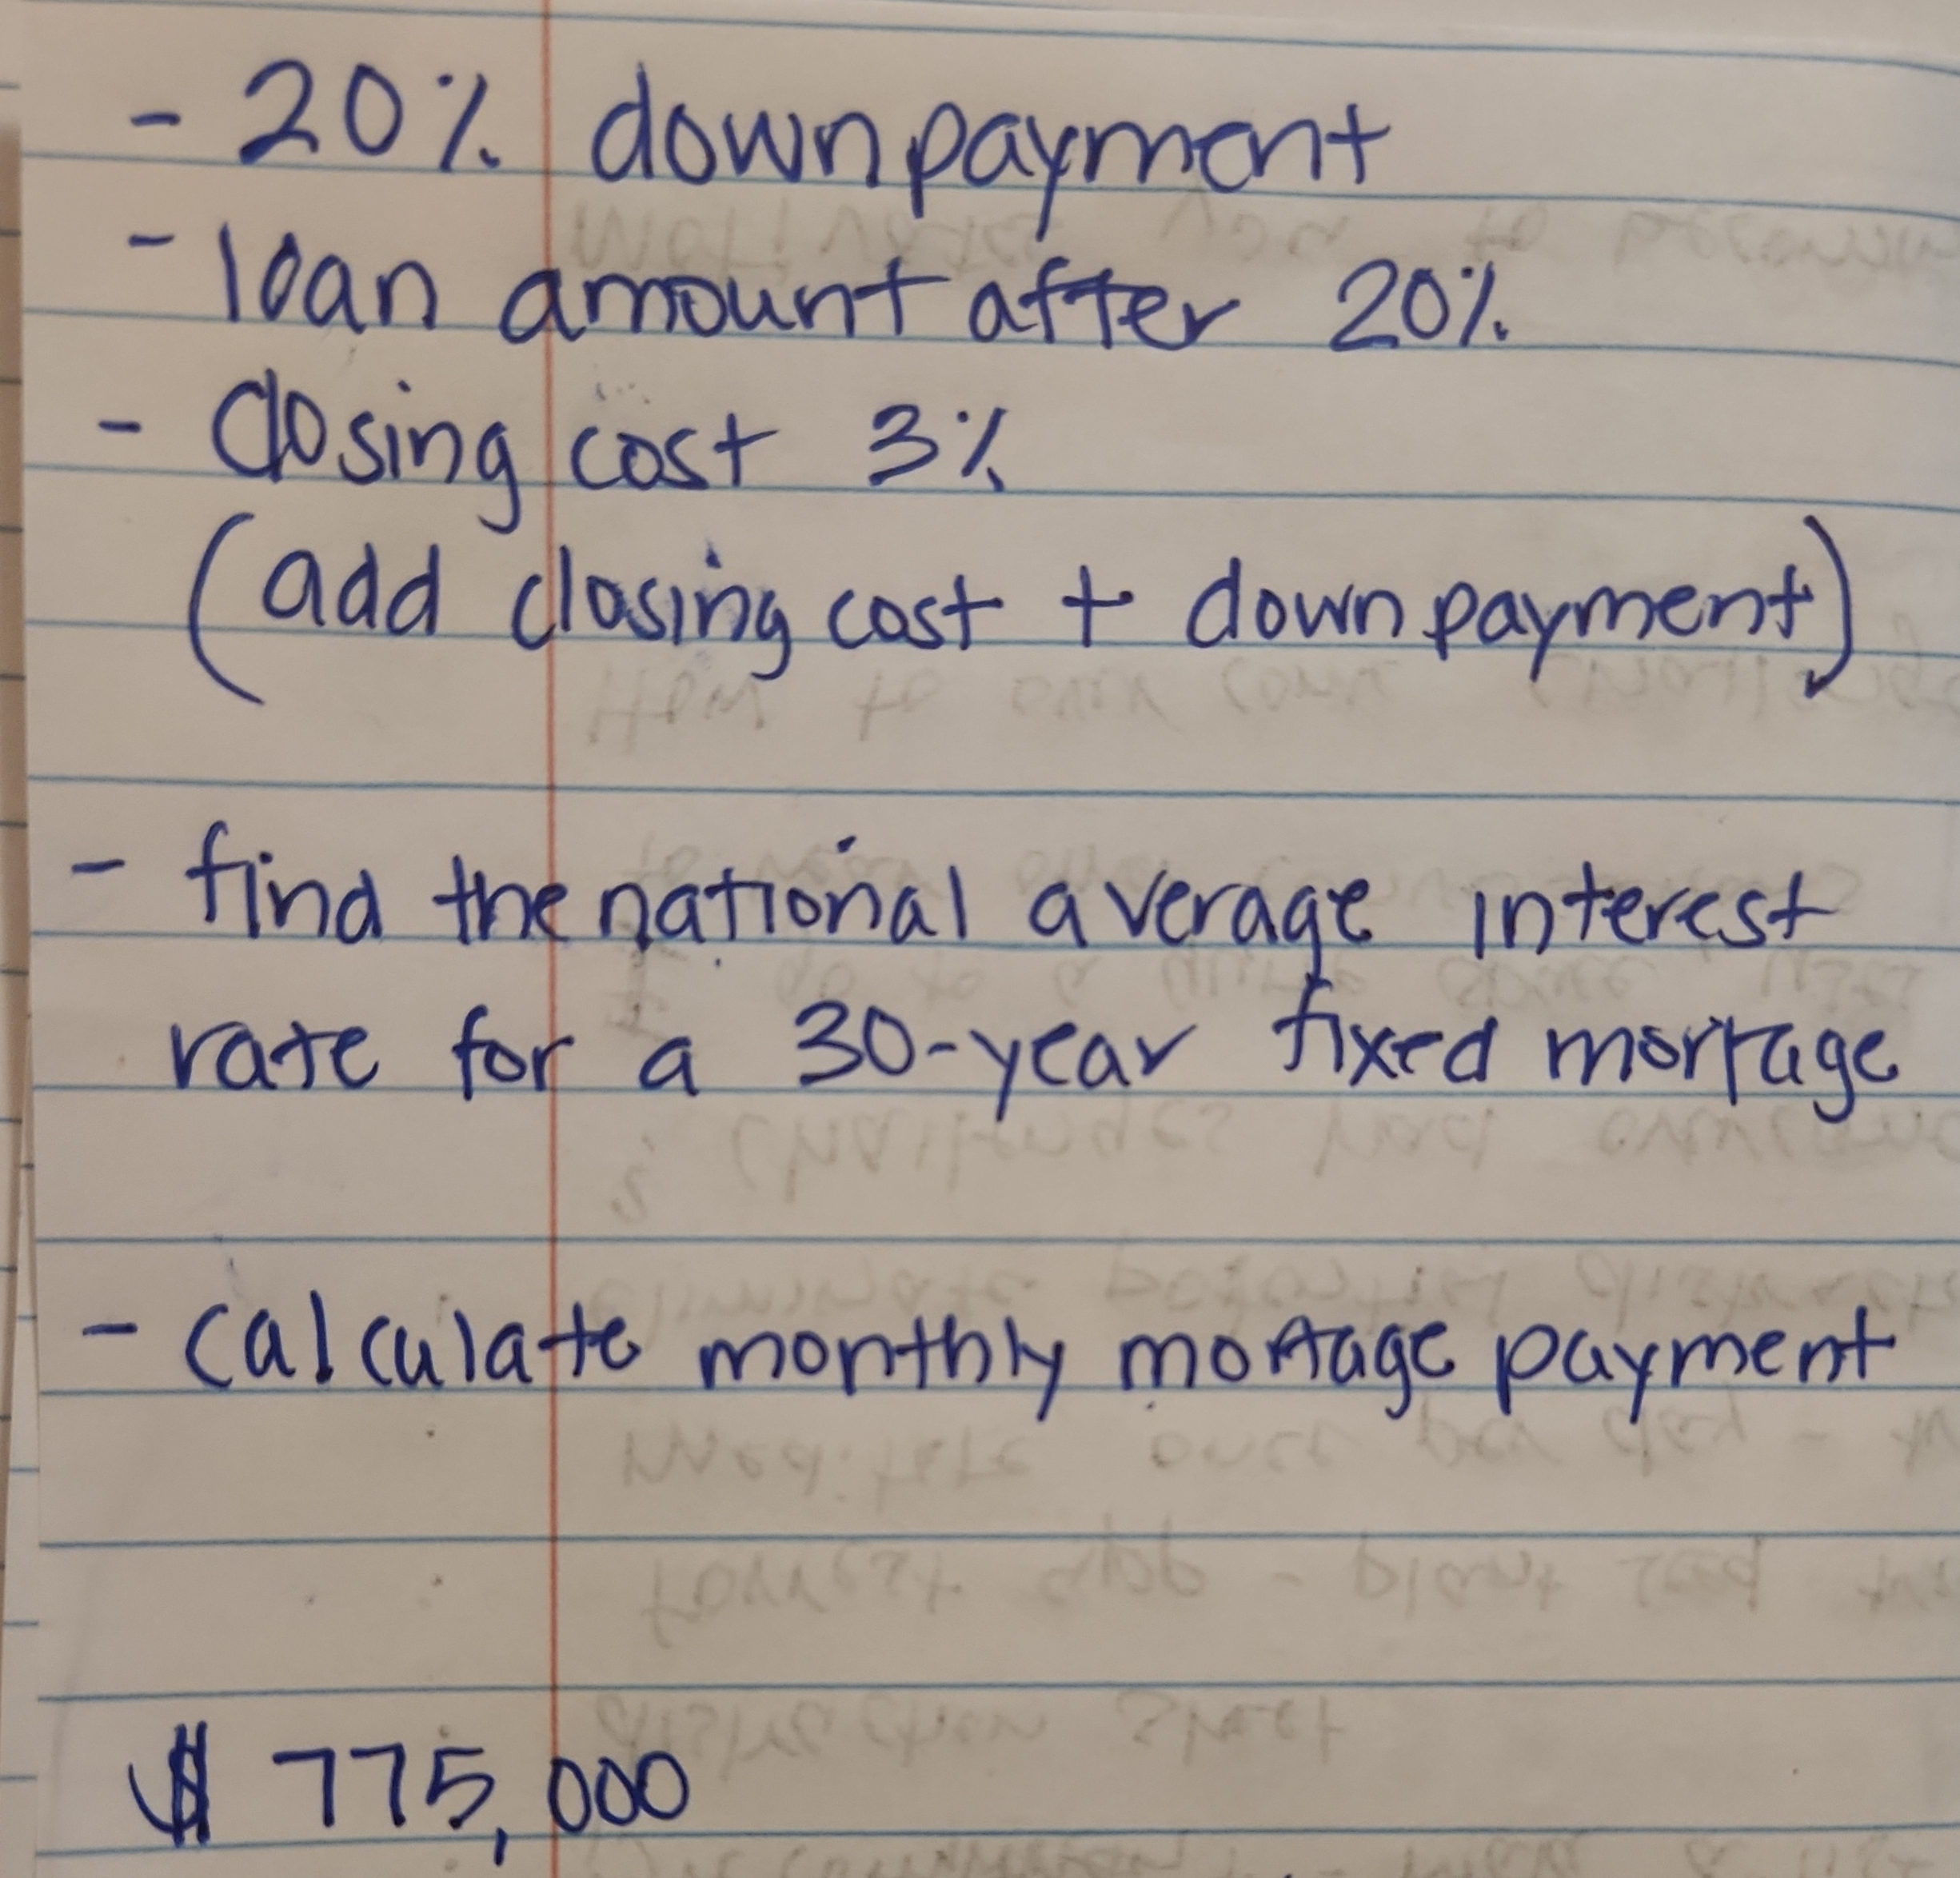 - 20% downpayment
- loan amount after 20%
- Closing cost 3%
(add closing cost + downpayment)
- find the national average interest
rate for a 30-year fixed mortage
- calculate monthly mortage payment
$ 775,000